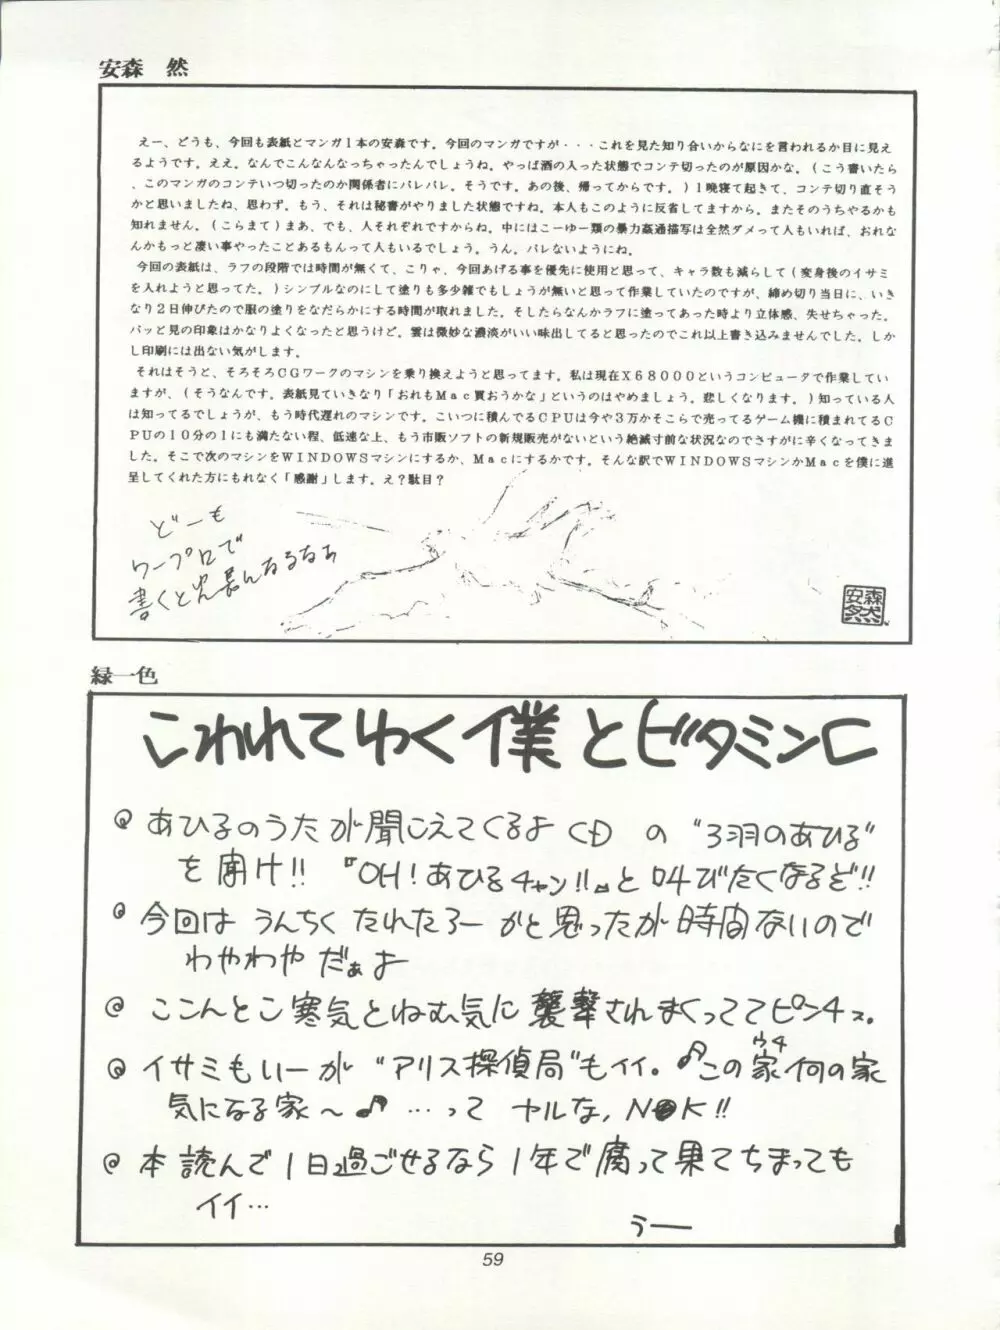 安森　然
えー、どうも、今回も表紙とマンガ１本の安森です。今回のマンガですが・・・これを見た知り合いからなにを言われるか目に見え
るようです。ええ。なんでこんなんなっちゃったんでしょうね。やっぱ酒の入った状態でコンテ切ったのが原因かな。（こう書いたら
、このマンガのコンテいつ切ったのか関係者にバレバレ。そうです。あの後、帰ってからです。）１晩寝て起きて、コンテ切り直そう
かと思いましたね、思わず。もう、それは秘書がやりました状態ですね。本人もこのように反省してますから。またそのうちやるかも
知れません。（こらまて）まあ、でも、人それぞれですからね。中にはこーゆー類の暴力姦通描写は全然ダメって人もいれば、おれな
んかもっと凄い事やったことあるもんって人もいるでしょう。うん。バレないようにね。
今回の表紙は、ラフの段階では時間が無くて、こりゃ、今回あげる事を優先に使用と思って、キャラ数も減らして（変身後のイサミ
を入れようと思ってた。）シンプルなのにして塗りも多少雑でもしょうが無いと思って作業していたのですが、締め切り当日に、いき
なり２日伸びたので服の塗りをなだらかにする時間が取れました。そしたらなんかラフに塗ってあった時より立体感、失せちゃった。
パッと見の印象はかなりよくなったと思うけど。雲は微妙な濃淡がいい味出してると思ったのでこれ以上書き込みませんでした。しか
し印刷には出ない気がします。
それはそうと、そろそろＣＧワークのマシンを乗り換えようと思ってます。私は現在Ｘ６８０００というコンピュータで作業してい
ますが、（そうなんです。表紙見ていきなり「おれもＭａｃ買おうかな」というのはやめましょう。悲しくなります。）知っている人
は知ってるでしょうが、もう時代遅れのマシンです。こいつに積んでるＣＰＵは今や３万かそこらで売ってるゲーム機に積まれてるＣ
ＰＵの１０分の１にも満たない程、低速な上、もう市販ソフトの新規販売がないという絶滅寸前な状況なのでさすがに辛くなってきま
した。そこで次のマシンをＷＩＮＤＯＷＳマシンにするか、Ｍａｃにするかです。そんな訳でＷＩＮＤＯＷＳマシンかＭａｃを僕に進
呈してくれた方にもれなく「感謝」します。え？駄目？
どーも
ワープロで
書くと文長んなるなぁ
安森
然
緑一色
こわれてゆく僕とビタミンC
@ あひるのうたが聞こえてくるよ CD の "3羽のあひる"
を聞け!! 『OH! あひるチャン!!』と叫びたくなるぞ!!
@ 今回は うんちく たれたろー かと思ったが時間ないので
わやわや だぁよ
@ ここんとこ寒気とねむ気に襲撃されまくっててピンチス。
@ イサミもいーが "アリス探偵局"もイイ。♪この家何の家
ウチ
気になる家〜♪ …って ヤルな, N●K!!
@ 本読んで1日過ごせるなら1年で腐って果てちまっても
イイ…
うー
59